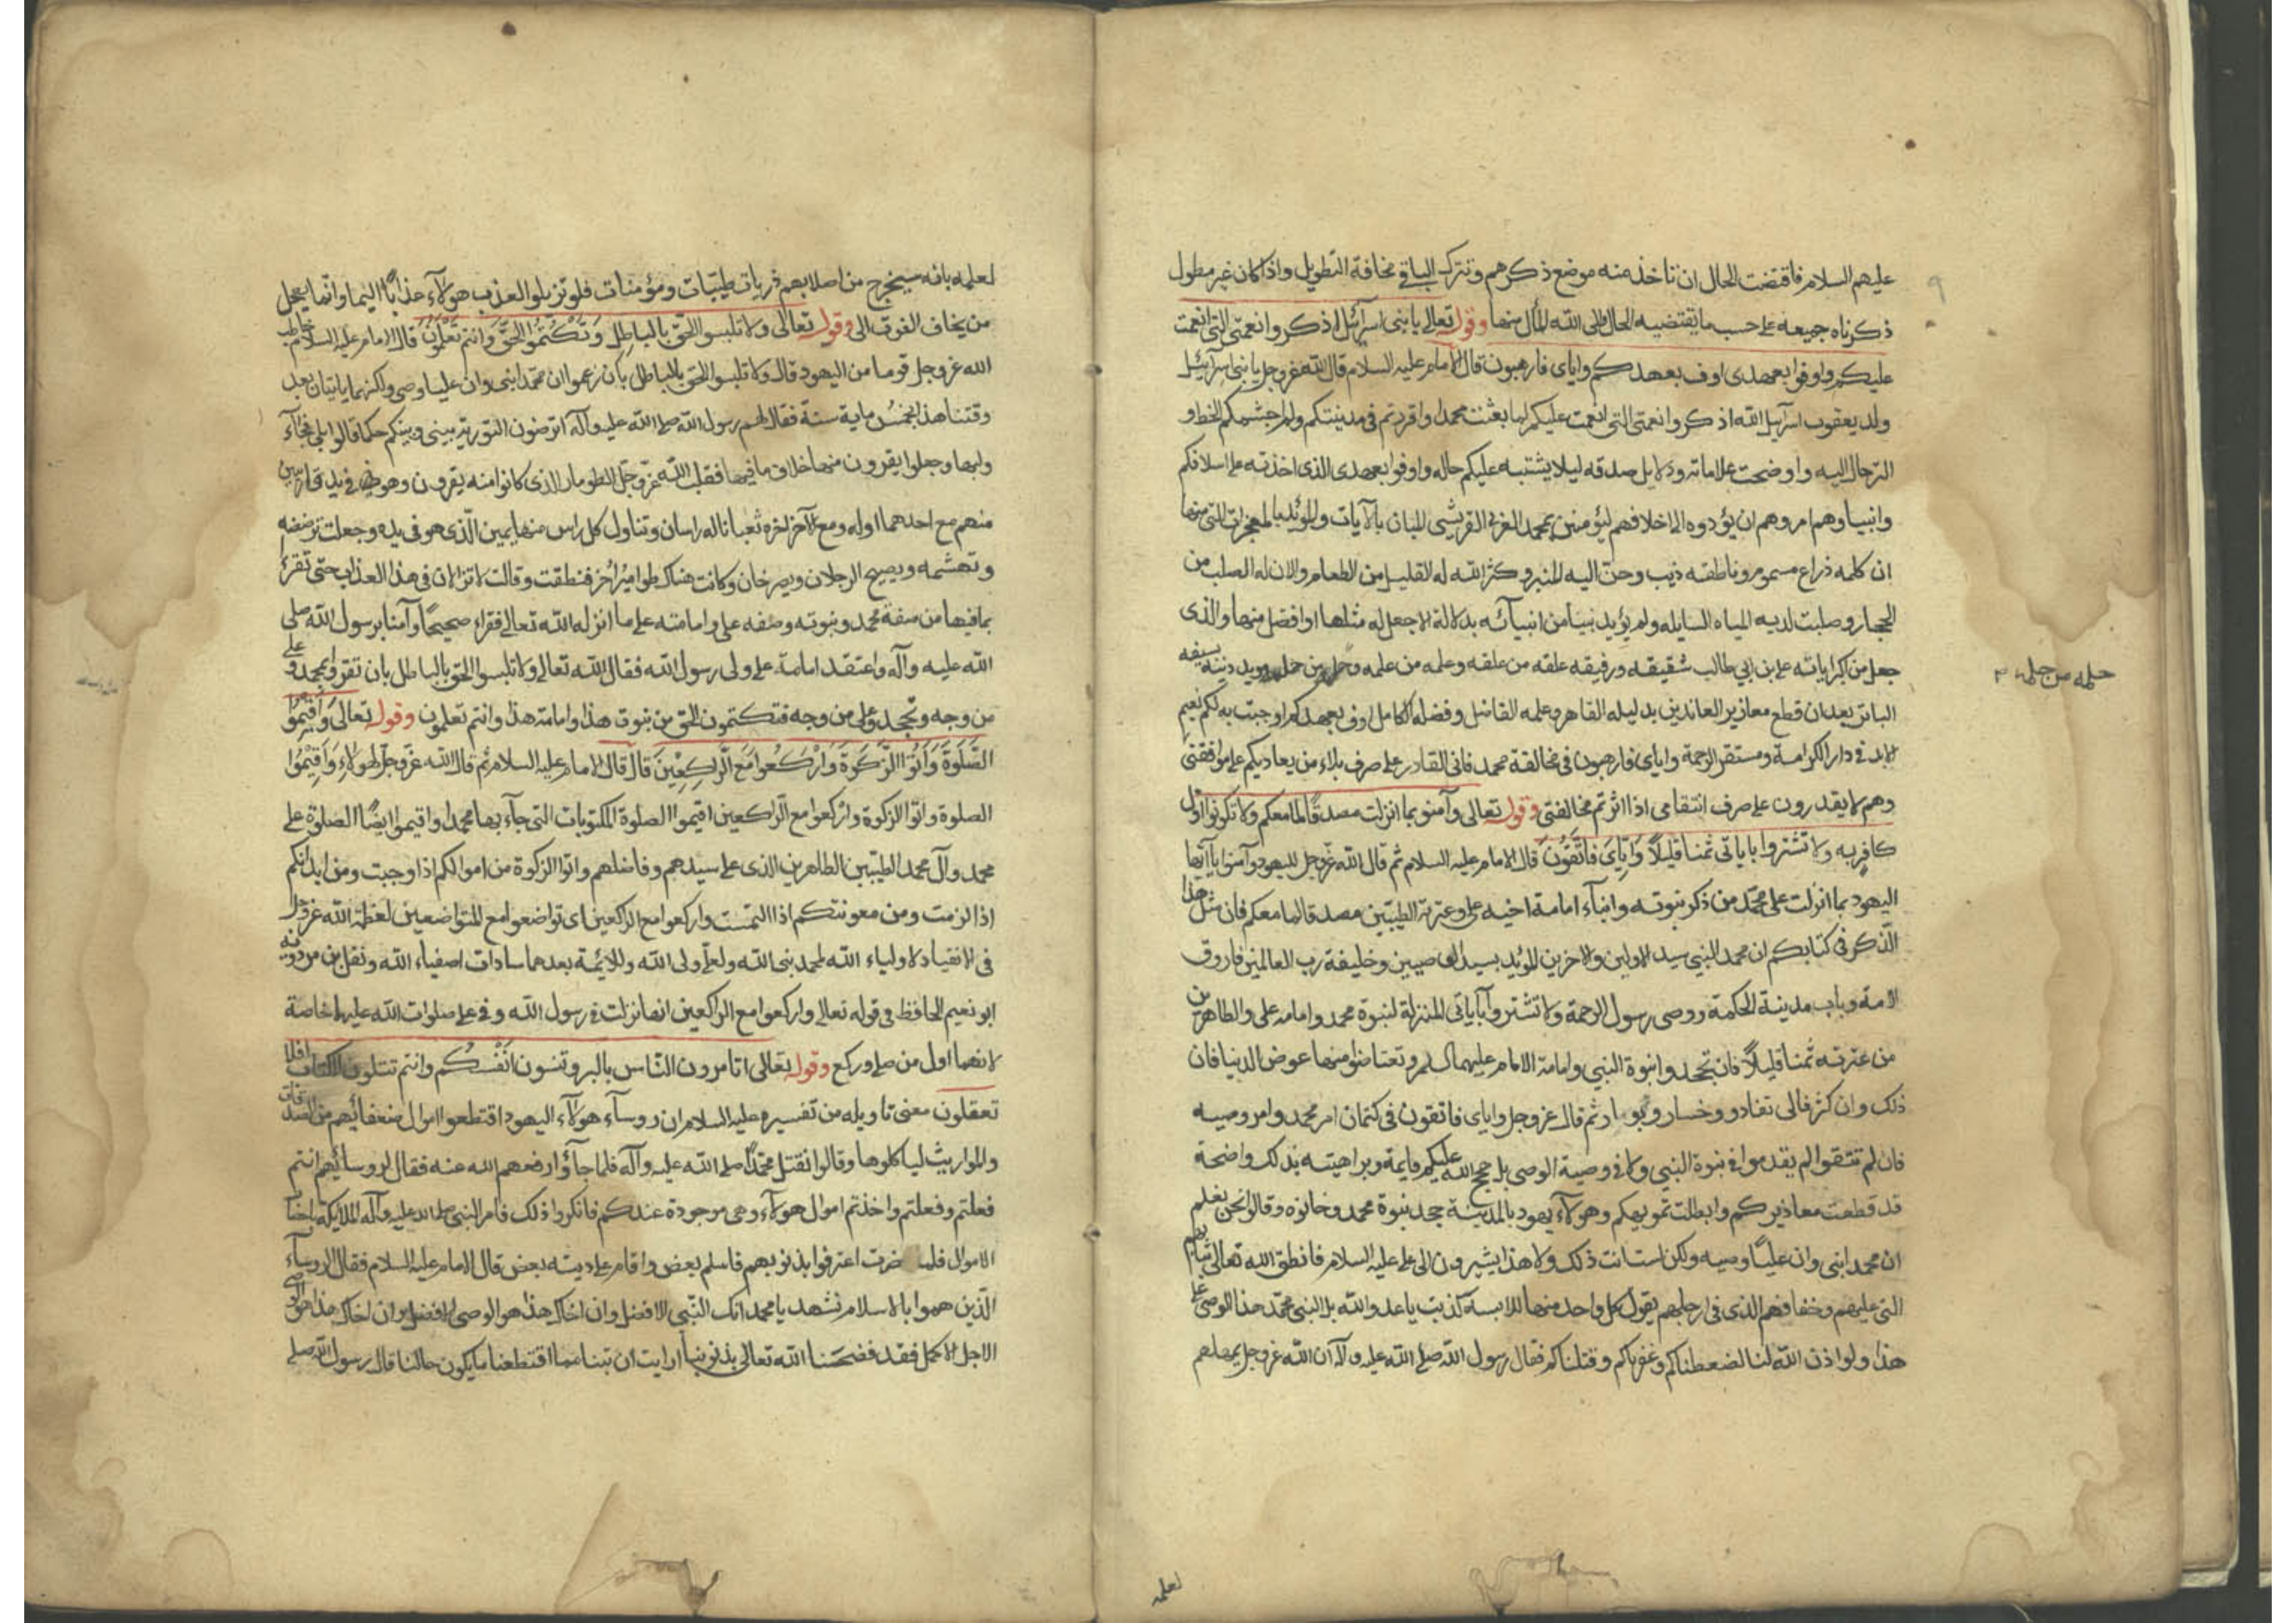 عليهم السلام فاقتضت الحال ان ناخذ منه موضع ذكرهم ونترك الباقي مخافة التطويل واذا كان غير مطول
ذكرناه جميعه على حسب ما يقتضيه الحال والى الله المآل منها وقوله تعالى يا بنى اسرآئيل اذكروا نعمتى التى انعمت
عليكم واوفوا بعهدى اوف بعهدكم واياى فارهبون قال الامام عليه السلام قال الله عز وجل يا بنى اسرآئيل
ولد يعقوب اسرآئيل الله اذكروا نعمتى التى انعمت عليكم لما بعثت محمدا واقررتم فى مدينتكم ولم اجشمكم الحط و
الترحال اليه واوضحت علاماته ودلايل صدقه ليلا يشتبه عليكم حاله واوفوا بعهدى الذى اخذته على اسلافكم
وانبياوهم امروهم ان يؤدوه الى اخلافهم ليؤمنن بمحمد العربى القريشى المبان بالآيات والمؤيد بالمعجزات التى منها
ان كلمه ذراع مسموم وناطقه ذيب وحن اليه المنبر وكثر الله له القليل من الطعام والان له الصلب من
الحجار وصلبت لديه المياه السايله ولم يؤيد نبيا من انبيائه بدلالة الا جعل له مثلها او افضل منها والذى
جعل من اكبر اياته على بن ابي طالب شقيقه ورفيقه عقله من عقله وعلمه من علمه وحلمه من حلمه مويد دينه بسيفه
حلمه من حلمه
الباتر بعد ان قطع معاذير العاندين بدليله القاهر وعلمه الفاضل وفضله الكامل اوف بعهدكم اوجبت به لكم نعيم
الابد فى دار الكرامة ومستقر الرحمة واياى فارهبون فى مخالفة محمد فانى القادر على صرف بلاء من يعاديكم على موافقتى
وهم لا يقدرون على صرف انتقامى اذا اثرتم مخالفتى وقوله تعالى وآمنوا بما انزلت مصدقا لما معكم ولا تكونوا اول
كافر به ولا تشتروا باياتى ثمنا قليلا واياى فاتقون قال الامام عليه السلام ثم قال الله عز وجل لليهود وآمنوا يا ايها
اليهود بما انزلت على محمد من ذكر نبوته وانباء امامة اخيه على وعترته الطيبين مصدقا لما معكم فان مثل هذا
الذكر فى كتابكم ان محمد النبى سيد الاولين والاخرين المؤيد بسيد الوصيين وخليفة رب العالمين فاروق
الامة وباب مدينة الحكمة ووصى رسول الرحمة ولا تشتروا بآياتى المنزلة لنبوة محمد وامامه على والطاهرين
من عترته ثمنا قليلا فان تجحدوا نبوة النبى وامامة الامام عليهما السلم وتعتاضوا منها عوض الدنيا فان
ذلك وان كثر فالى نفاد وخسار وبوار ثم قال عز وجل واياى فاتقون فى كتمان امر محمد وامر وصيه
فان لم تتقوا لم يقدموا فى نبوة النبى ولا فى وصية الوصى بل حجج الله عليكم قايمة وبراهينه بذلك واضحة
قد قطعت معاذيركم وابطلت تمويهكم وهولآء يهود بالمدينة جحد نبوة محمد وخانوه وقالوا نحن نعلم
ان محمد انبى وان عليا وصيه ولكن لست انت ذلك ولا هذا يشيرون الى على عليه السلام فانطق الله تعالى ثيابهم
التى عليهم وخفافهم الذى فى ارجلهم يقول كل واحد منها للابسه كذبت يا عدو الله بل النبى محمد هذا والوصى على
هذا ولو اذن الله لنا لضغطناكم وعقرناكم وقتلناكم فقال رسول الله صلى الله عليه وآله ان الله عز وجل يمهلهم
لعلمه
لعلمه بانه سيخرج من اصلابهم ذريات طيبات ومؤمنات فلو تزيلوا لعذب هولآء عذابا اليما وانما يعجل
من يخاف الفوت الى وقوله تعالى ولا تلبسوا الحق بالباطل وتكتموا الحق وانتم تعلمون قال الامام عليه السلام خاطب
الله عز وجل قوما من اليهود قال ولا تلبسوا الحق بالباطل بأن زعموا ان محمدا نبى وان عليا وصى ولكنهما ياتيان بعد
وقتنا هذا بخمس ماية سنة فقال لهم رسول الله صلى الله عليه وآله اترضون التورية بينى وبينكم حكما قالوا بلى فجآء
وا بها وجعلوا يقرون منها خلاف ما فيها فقلب الله عز وجل الطومار الذى كانوا منه يقرون وهو فى يد قارئين
منهم مع احدهما اوله ومع الآخر اخره ثعبانا له راسان وتناول كل راس منها يمين الذى هو فى يده وجعلت ترضضه
وتهشمه ويصيح الرجلان ويصرخان وكانت هناك طوامير اخر فنطقت وقالت لا تزالان فى هذا العذاب حتى تقرء
بما فيها من صفة محمد ونبوته وصفه على وامامته على ما انزله الله تعالى فقراء صحيحا وآمنا برسول الله صلى
الله عليه وآله واعتقد امامة على ولى رسول الله فقال الله تعالى ولا تلبسوا الحق بالباطل بان تقروا بمحمد وعلى
من وجه وتجحدوا على من وجه فتكتمون الحق من نبوت هذا وامامة هذا وانتم تعلمون وقوله تعالى واقيموا
الصلوة وآتوا الزكوة واركعوا مع الراكعين قال قال الامام عليه السلام ثم قال الله عز وجل لهولآء واقيموا
الصلوة واتوا الزكوة واركعوا مع الراكعين اقيموا الصلوة المكتوبات التى جآء بها محمد واقيموا ايضا الصلوة على
محمد وآل محمد الطيبين الطاهرين الذى على سيدهم وفاضلهم واتوا الزكوة من اموالكم اذا وجبت ومن ابدانكم
اذا لزمت ومن معونتكم اذا التمست واركعوا مع الراكعين اى تواضعوا مع المتواضعين لعظمة الله عز وجل
فى الانقياد لاولياء الله لمحمد نبى الله ولعلى ولى الله وللايمة بعدهما سادات اصفياء الله ونقل بن مردويه
ابو نعيم الحافظ فى قوله تعالى واركعوا مع الراكعين انها نزلت فى رسول الله وفى على صلوات الله عليهما خاصة
لانهما اول من صلى وركع وقوله تعالى اتامرون الناس بالبر وتنسون انفسكم وانتم تتلون الكتاب افلا
تعقلون معنى تاويله من تفسيره عليه السلام ان روسآء هولآء اليهود اقتطعوا اموال ضعفائهم من الصدقات
والمواريث لياكلوها وقالوا نقتل محمدا صلى الله عليه وآله فلما جاؤا رفعهم الله عنه فقال لروسائهم انتم
فعلتم وفعلتم واخذتم اموال هولآء وهى موجودة عندكم فانكروا ذلك فامر النبى صلى الله عليه وآله الملايكة باحضار
الاموال فلما حضرت اعترفوا بذنوبهم فاسلم بعض واقام على دينه بعض قال الامام عليه السلام فقال الروسآء
الذين هموا بالاسلام نشهد يا محمد انك النبى الافضل وان اخاك هذا هو الوصى
الاجل الاكمل فقد فضحنا الله تعالى بذنوبنا ارايت ان تبنا عما اقتطعنا ما يكون حالنا قال رسول الله صلى